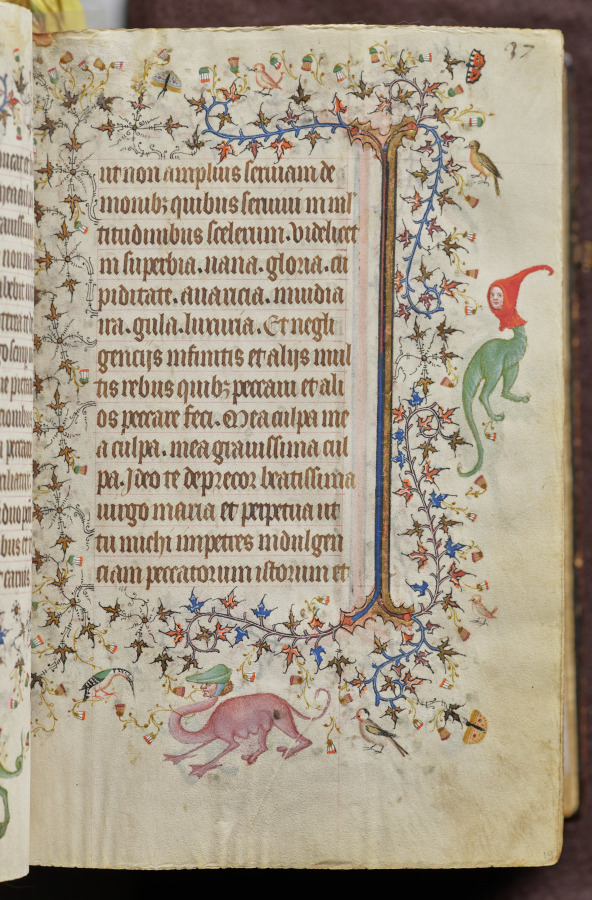 37
ut non amplius seruiam de
monibꝫ quibus seruiui in mul
titudinibus scelerum. videlicet
in superbia. uana. gloria. cu
piditate. auaricia. inuidia
ira. gula. luxuria. Et negli
gencijs infinitis et alijs mul
tis rebus quibꝫ peccaui et ali
os peccare feci. Mea culpa me
a culpa. mea grauissima cul
pa. Ideo te deprecor beatissima
uirgo maria et perpetua ut
tu michi impetres indulgen
ciam peccatorum istorum et